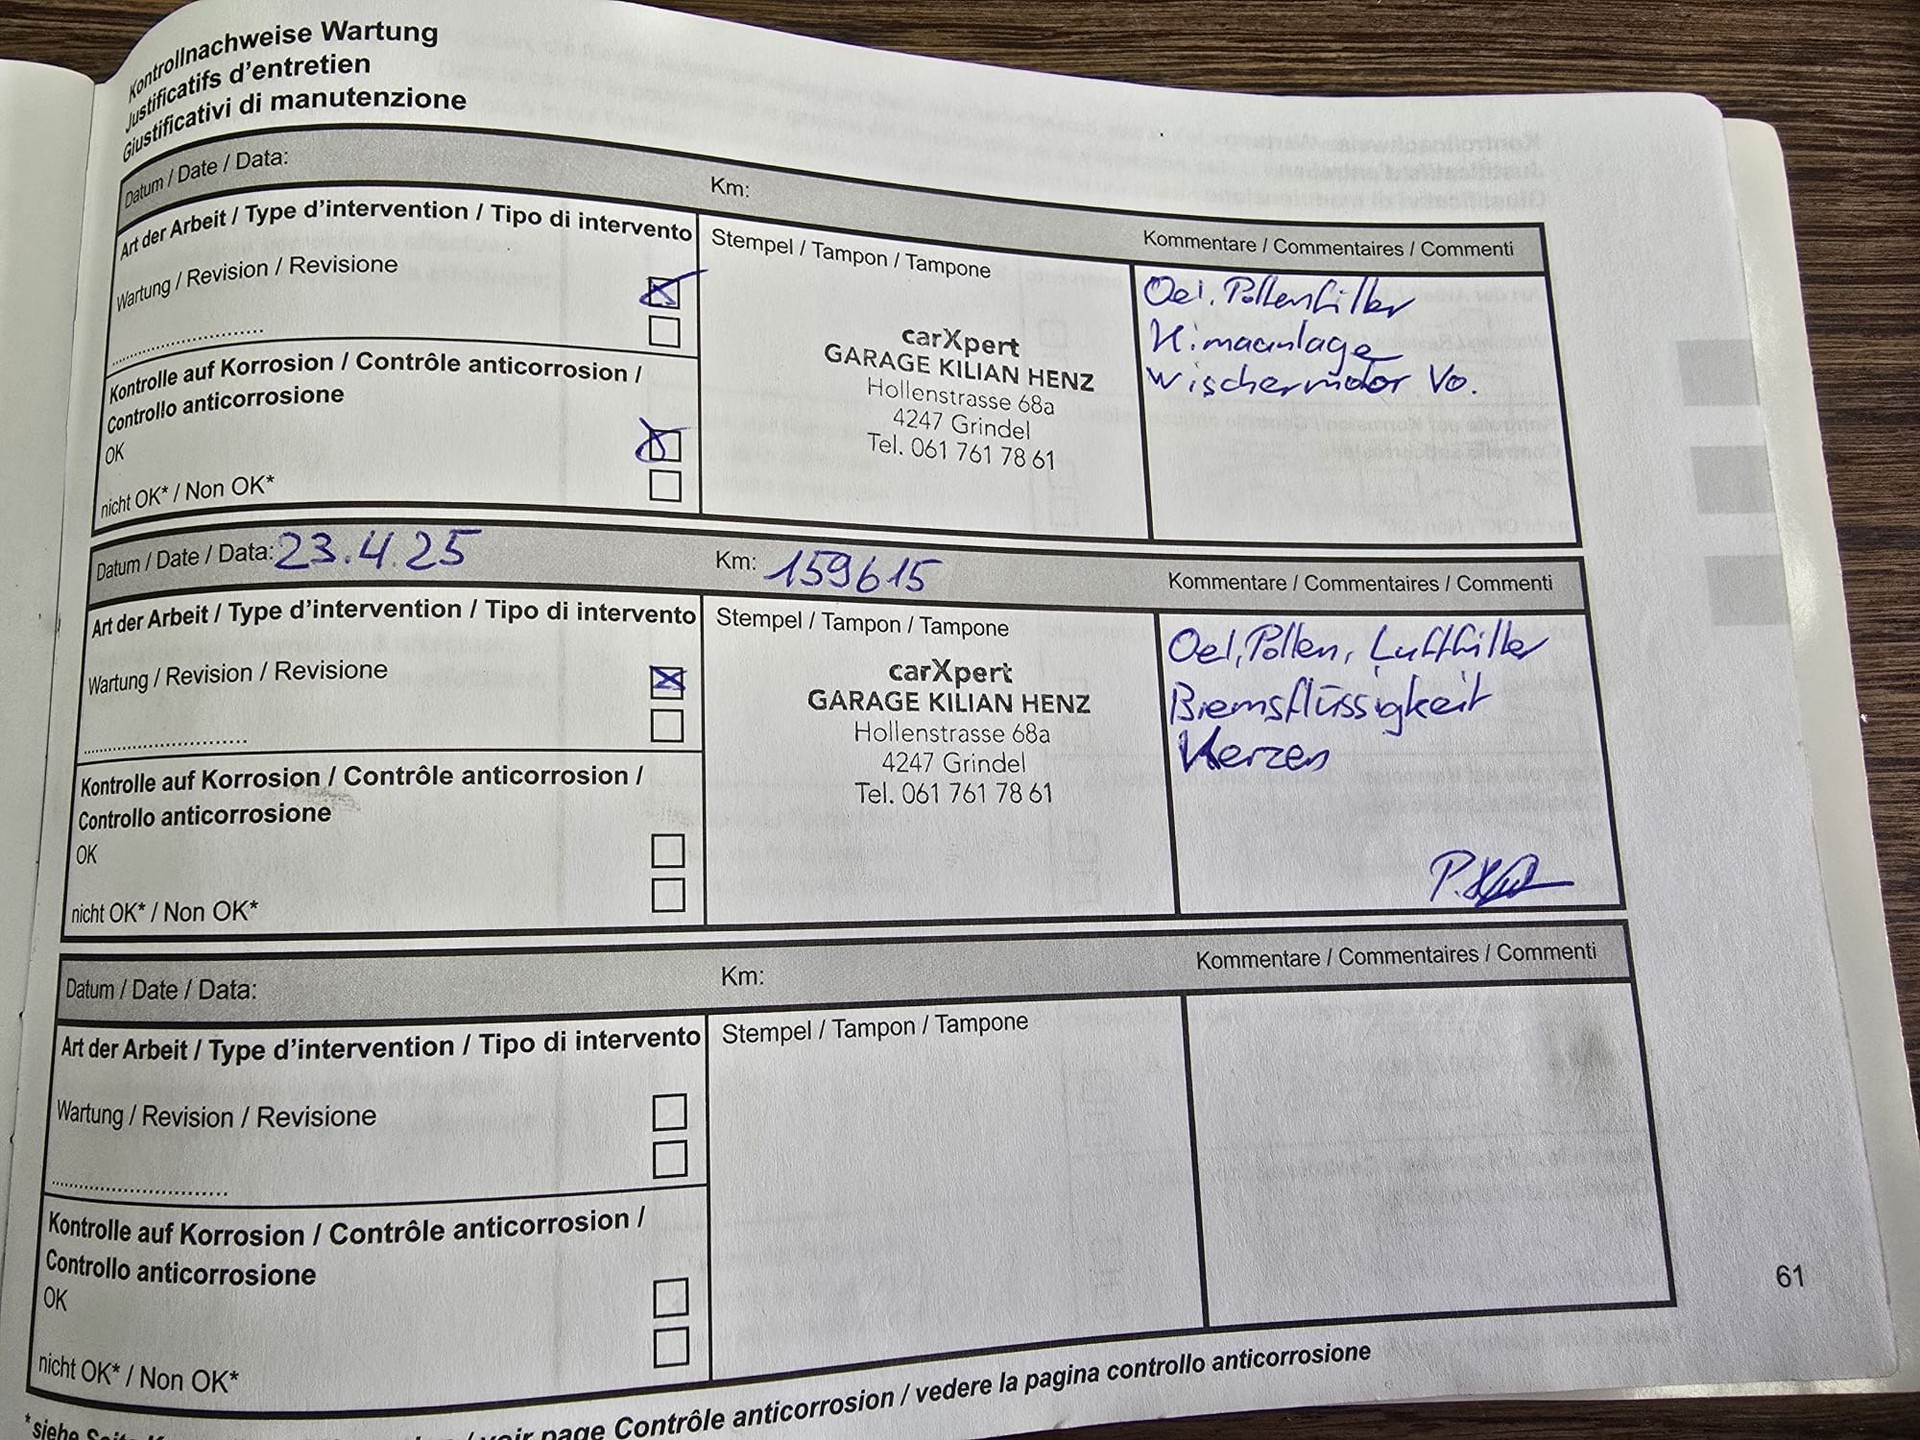 Kontrollnachweise Wartung
Justificatifs d'entretien
Giustificativi di manutenzione
Datum / Date / Data:
Km:
Kommentare / Commentaires / Commenti
Art der Arbeit / Type d'intervention / Tipo di intervento
Stempel / Tampon / Tampone
Wartung / Revision / Revisione
....................
Kontrolle auf Korrosion / Contrôle anticorrosion /
Controllo anticorrosione
OK
nicht OK* / Non OK*
carXpert
GARAGE KILIAN HENZ
Hollenstrasse 68a
4247 Grindel
Tel. 061 761 78 61
Oel, Pollenfilter
Klimaanlage
Wischermotor Vo.
Datum / Date / Data: 23.4.25
Km: 159615
Kommentare / Commentaires / Commenti
Art der Arbeit / Type d'intervention / Tipo di intervento
Stempel / Tampon / Tampone
Wartung / Revision / Revisione
....................
Kontrolle auf Korrosion / Contrôle anticorrosion /
Controllo anticorrosione
OK
nicht OK* / Non OK*
carXpert
GARAGE KILIAN HENZ
Hollenstrasse 68a
4247 Grindel
Tel. 061 761 78 61
Oel, Pollen, Luftfilter
Bremsflüssigkeit
Kerzen
Datum / Date / Data:
Km:
Kommentare / Commentaires / Commenti
Art der Arbeit / Type d'intervention / Tipo di intervento
Stempel / Tampon / Tampone
Wartung / Revision / Revisione
....................
Kontrolle auf Korrosion / Contrôle anticorrosion /
Controllo anticorrosione
OK
nicht OK* / Non OK*
61
*siehe Seite / voir page Contrôle anticorrosion / vedere la pagina controllo anticorrosione